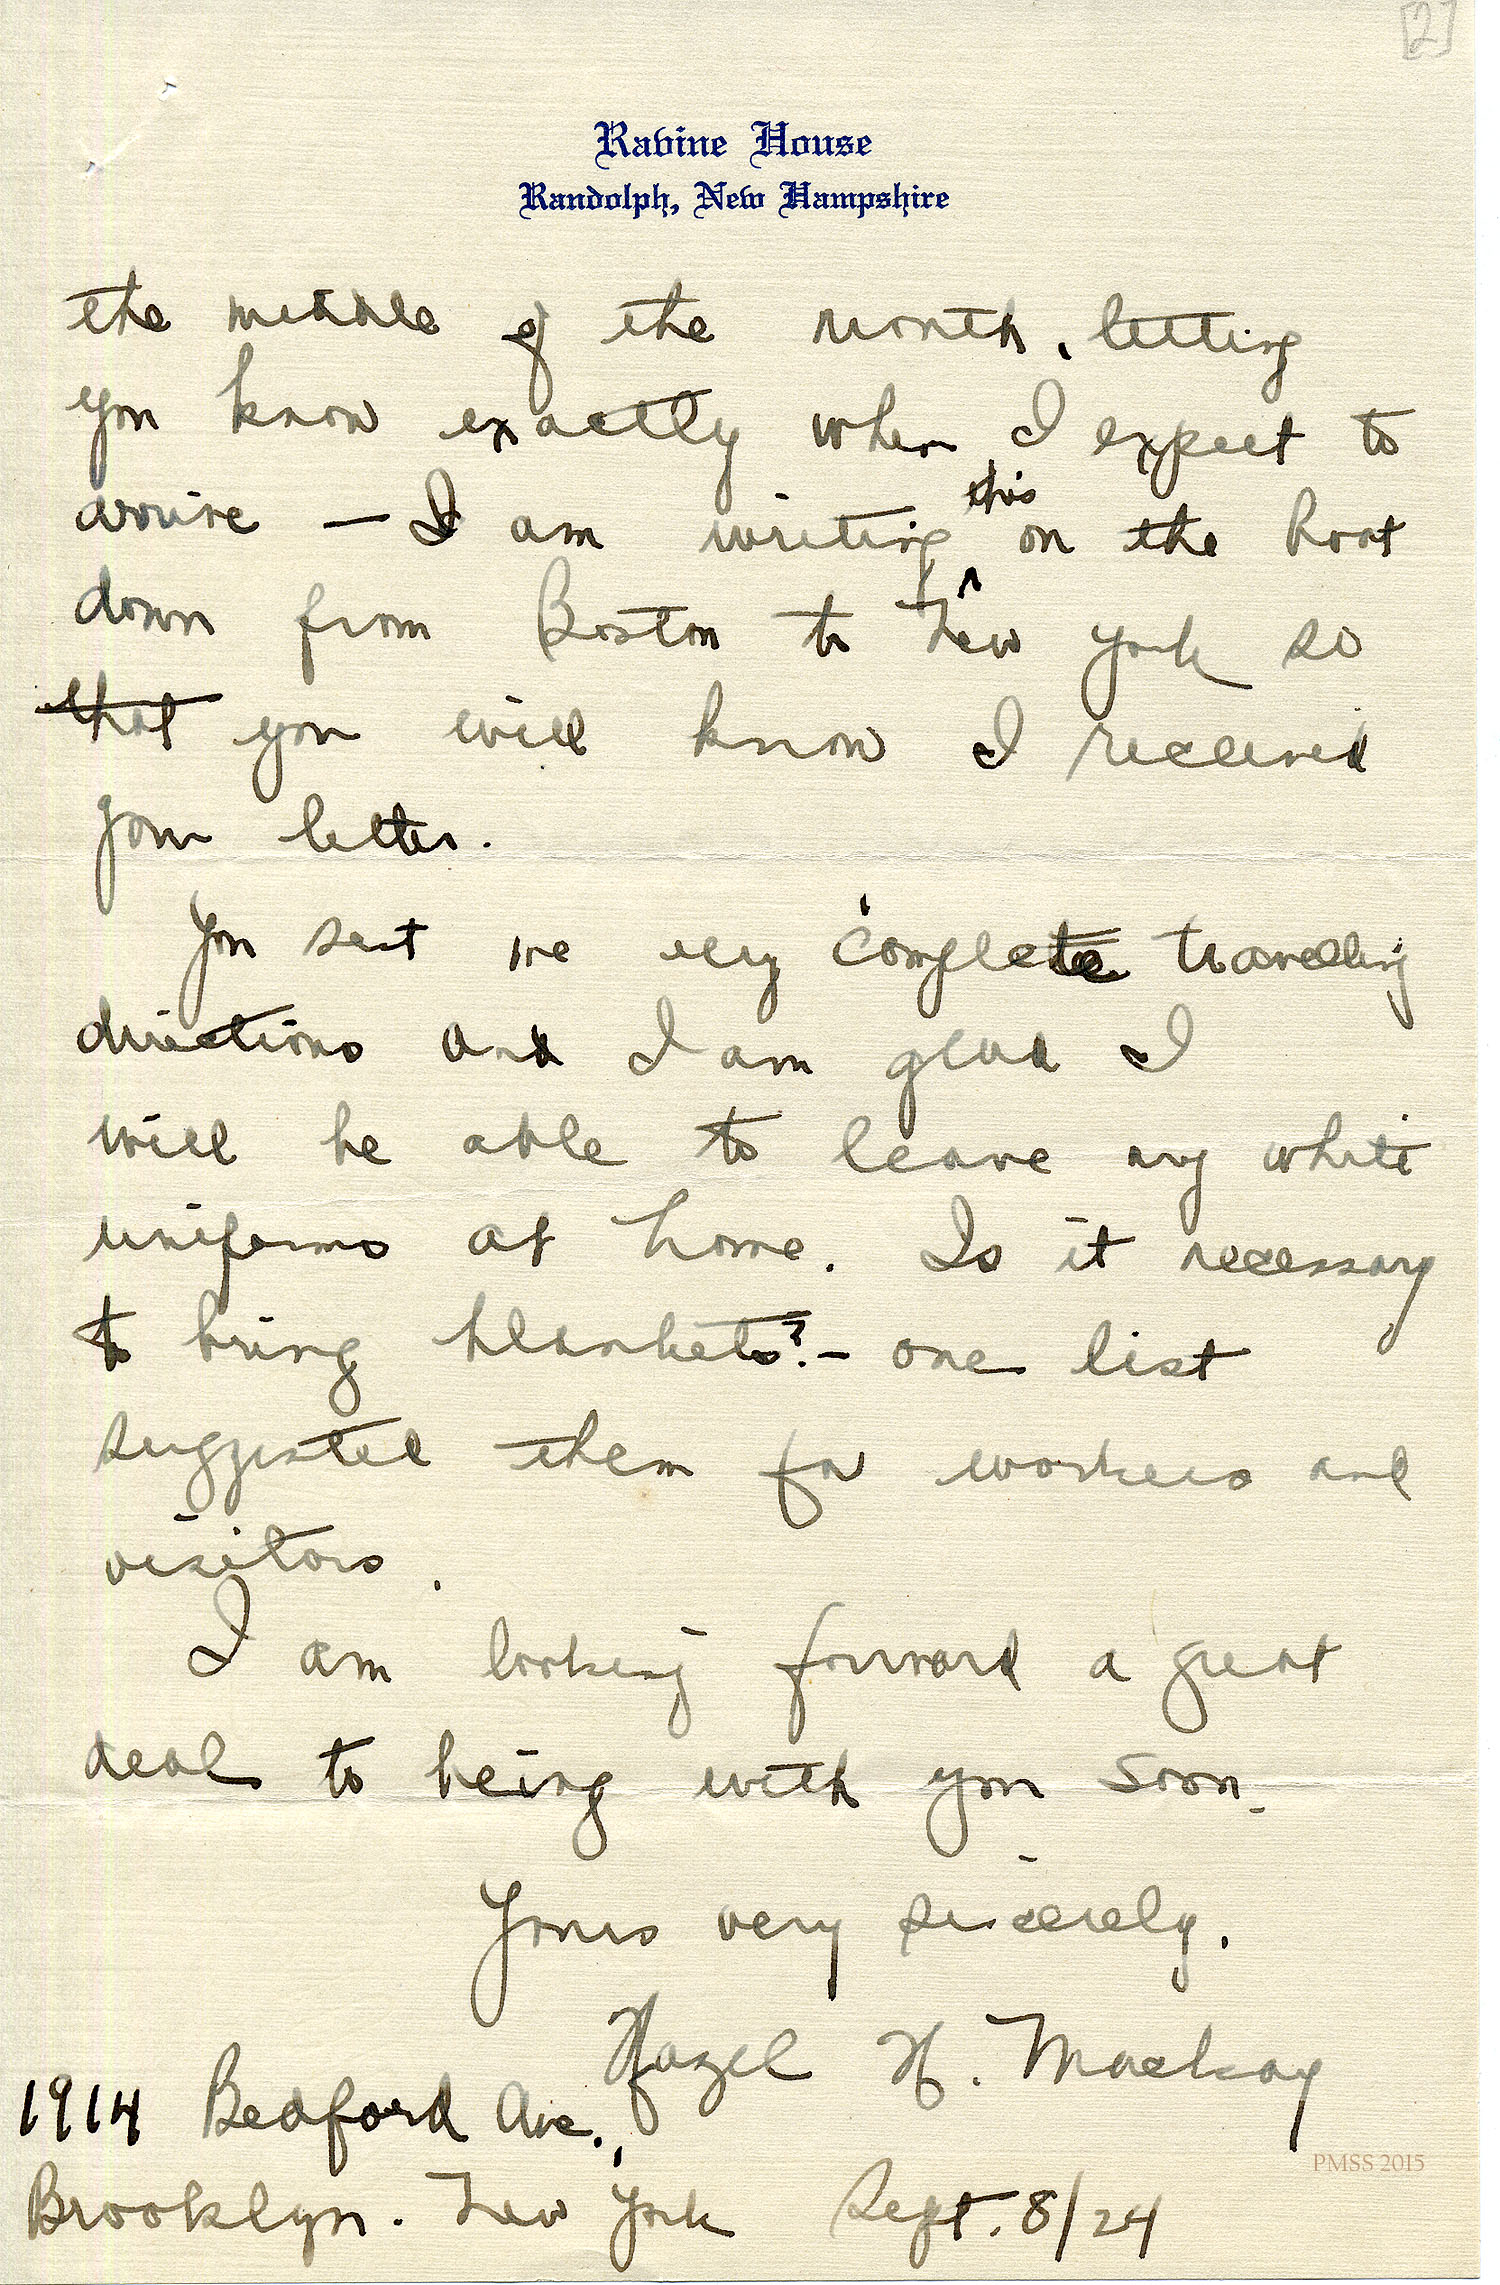 [2]
Ravine House
Randolph, New Hampshire
the middle of the month, letting
you know exactly when I expect to
arrive — I am writing this on the boat
down from Boston to New York so
that you will know I received
your letter.
You sent me very complete travelling
directions and I am glad I
will be able to leave my white
uniforms at home. Is it necessary
to bring blankets? - one list
suggested them for workers and
visitors.
I am looking forward a great
deal to being with you soon.
Yours very sincerely.
Hazel H. Mackay
1914 Bedford Ave.,
Brooklyn. New York Sept. 8/24
PMSS 2015